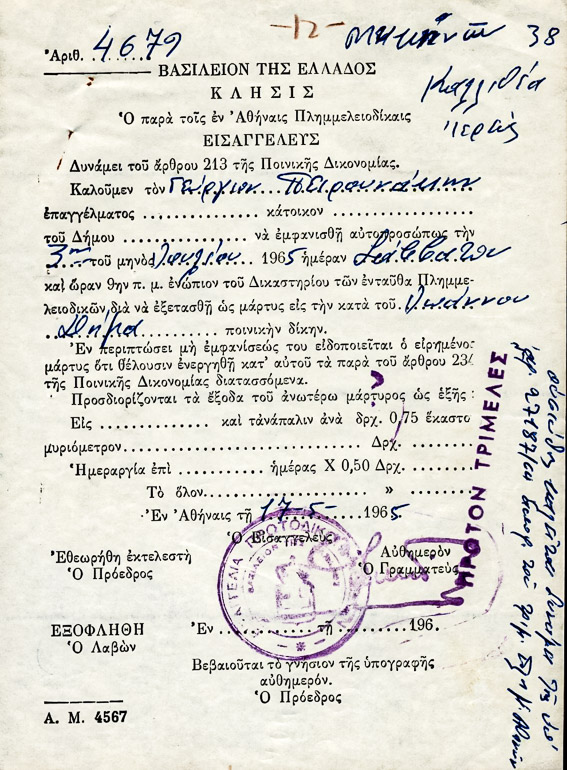 -12-
38
Ἀριθ. 4679
Καλλιθέα
ΒΑΣΙΛΕΙΟΝ ΤΗΣ ΕΛΛΑΔΟΣ
ΚΛΗΣΙΣ
Ὁ παρὰ τοῖς ἐν Ἀθήναις Πλημμελειοδίκαις
ΕΙΣΑΓΓΕΛΕΥΣ
Δυνάμει τοῦ ἄρθρου 213 τῆς Ποινικῆς Δικονομίας.
Καλοῦμεν τὸν Γεώργιον
ἐπαγγέλματος .................. κάτοικον ..................
τοῦ Δήμου .................. νὰ ἐμφανισθῇ αὐτοπροσώπως τὴν
3ην τοῦ μηνὸς Ἰουλίου 1965 ἡμέραν Σάββατον
καὶ ὥραν 9ην π. μ. ἐνώπιον τοῦ Δικαστηρίου τῶν ἐνταῦθα Πλημμε-
λειοδικῶν διὰ νὰ ἐξετασθῇ ὡς μάρτυς εἰς τὴν κατὰ τοῦ Ἰωάννου
Δήμα .................. ποινικὴν δίκην.
Ἐν περιπτώσει μὴ ἐμφανίσεώς του εἰδοποιεῖται ὁ εἰρημένος
μάρτυς ὅτι θέλουσιν ἐνεργηθῇ κατ' αὐτοῦ τὰ παρὰ τοῦ ἄρθρου 234
τῆς Ποινικῆς Δικονομίας διατασσόμενα.
Προσδιορίζονται τὰ ἔξοδα τοῦ ἀνωτέρω μάρτυρος ὡς ἑξῆς :
Εἰς .................. καὶ τἀνάπαλιν ἀνὰ δρχ. 0,75 ἕκαστο
μυριόμετρον .................. Δρχ. ..................
Ἡμεραργία ἐπὶ .................. ἡμέρας Χ 0,50 Δρχ. ..................
Τὸ ὅλον .................. » ..................
Ἐν Ἀθήναις τῇ 17-5- 1965
Ὁ Εἰσαγγελεὺς
Ἐθεωρήθη ἐκτελεστὴ
Αὐθημερὸν
Ὁ Πρόεδρος
Ὁ Γραμματεὺς
ΕΞΟΦΛΗΘΗ
Ἐν .................. τῇ .................. 196.
Ὁ Λαβὼν
Βεβαιοῦται τὸ γνήσιον τῆς ὑπογραφῆς
αὐθημερόν.
Ὁ Πρόεδρος
Α. Μ. 4567
ΠΡΩΤΟΝ ΤΡΙΜΕΛΕΣ